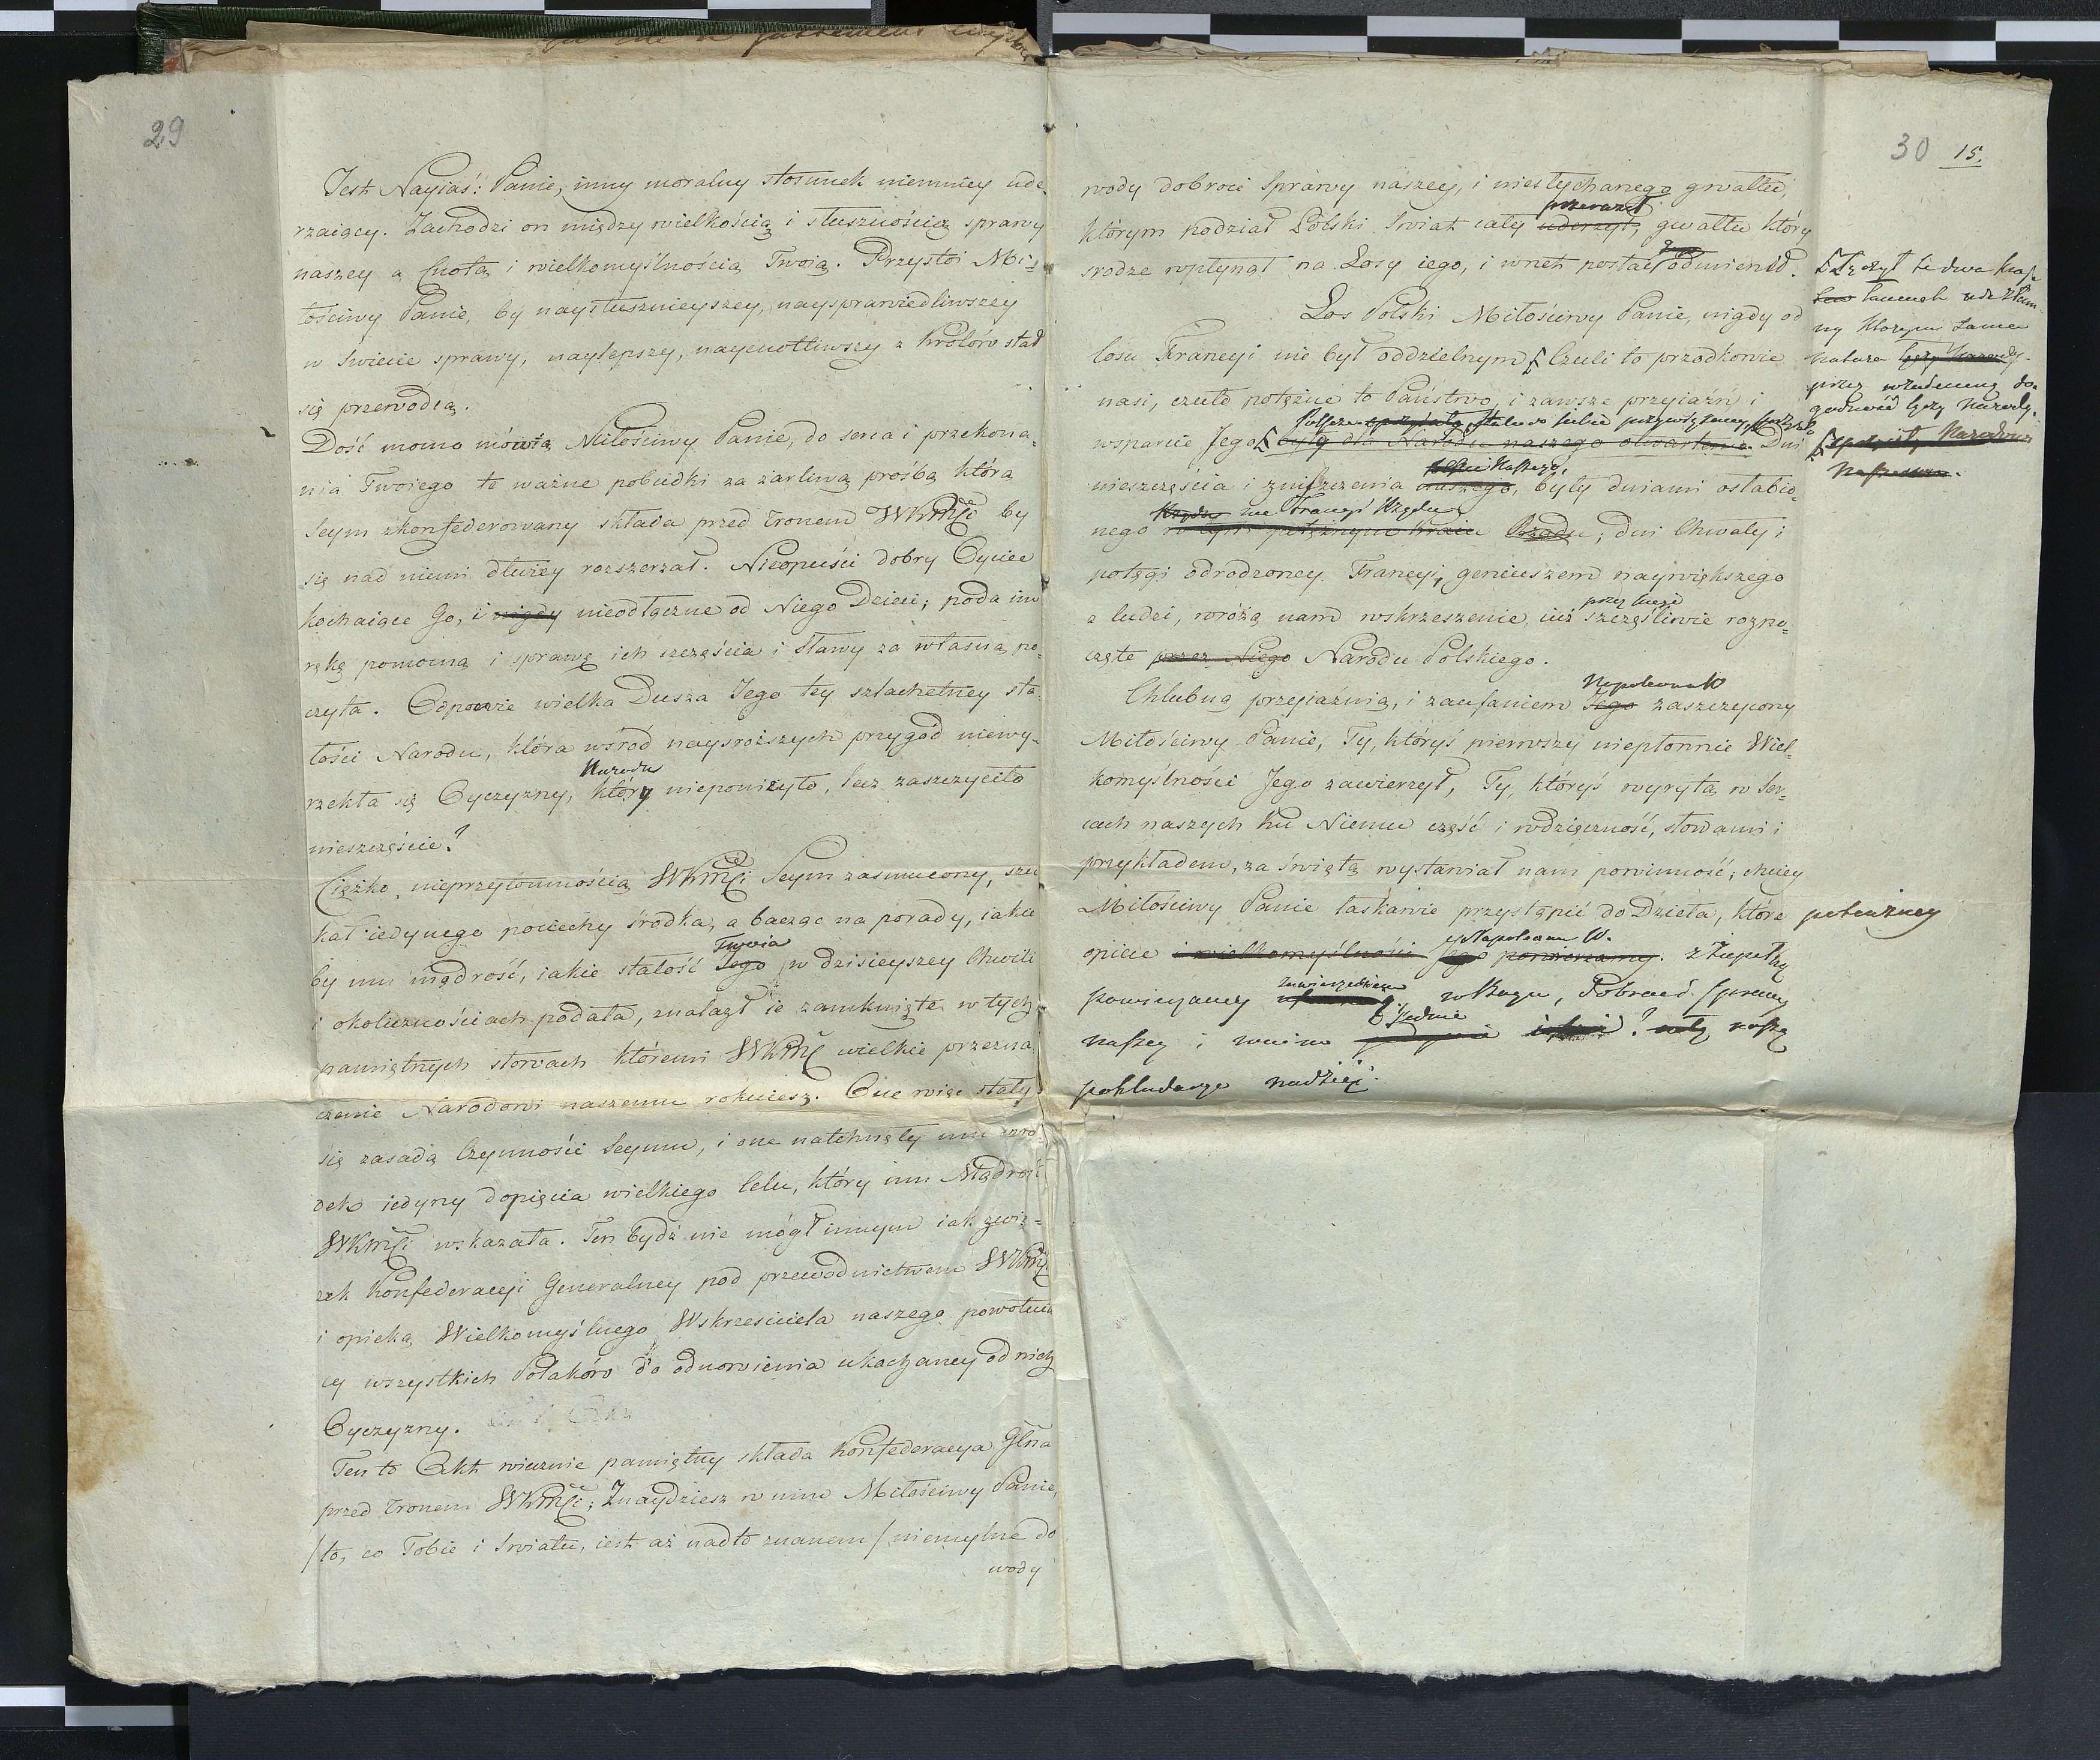 29
Jest Nayiaś: Panie, inny moralny stosunek niemniey ude-
rzaiący. Zachodzi on między wielkością i słusznością sprawy
naszey a Cnotą i wielkomyślnością Twoią. Przystoi Mi-
łościwy Panie, by naysłusznieyszey, naysprawiedliwszey
w świecie sprawy, naylepszy, naycnotliwszy z Królów stał
się przewódcą.
Dość mocno mówią Miłościwy Panie, do serca i przekona-
nia Twoiego te ważne pobudki za żarliwą prośbą którą
Seym skonfederowany składa przed tronem WKMći by
się nad niemi dłużey rozszerzał. Nieopuści dobry Oyciec
kochaiące Go, i nigdy nieodłączne od Niego Dzieci; poda im
rękę pomocną i sprawę ich szczęścia i sławy za własną po-
czyta. Odpowie wielka Dusza Jego tey szlachetney sta-
łości Narodu, która wśród naysroższych przygód niewy-
Narodu
rzekła się Oyczyzny, który nieponiżyło, lecz zaszczyciło
nieszczęście?
Ciężko nieprzytomnością WKMći Seym zasmucony, szu
kał iedynego pociechy środka, a bacząc na porady, iakie
Twoia
by mu mądrość, iakie stałość Jego w dzisieyszey Chwili
i okolicznościach podała, znalazł ie zamknięte w tych
pamiętnych słowach któremi WKMć wielkie przezna
czenie Narodowi naszemu rokuiesz. One więc stały
się zasadą Czynności Seymu, i one natchnęły mu śro-
dek iedyny dopięcia wielkiego Celu, który mu Mądrość
WKMći wskazała. Ten bydź nie mógł innym iak zwią-
zek Konfederacyi Generalney pod przewodnictwem WKMći
i opieką Wielkomyślnego Wskrzesiciela naszego powołuią
cy wszystkich Polaków do odnowienia ukochaney od nich
Oyczyzny.
Ten to Akt wiecznie pamiętny składa Konfederacya Glna
przed tronem WKMći; Znaydziesz w nim Miłościwy Panie,
/to, co Tobie i Światu, iest aż nadto znanem/ niemylne do
wody
30 15.
wody dobroci Sprawy naszey, i niesłychanego gwałtu,
przeraził
którym podział Polski Świat cały uderzył, gwałtu który
srodze wpłynął na Losy iego, i wnet postać odmienił.
Los Polski Miłościwy Panie, nigdy od
losu Francyi nie był oddzielnym Czuli to przodkowie
nasi, czuło potężne to Państwo, i zawsze przyiaźń i
wsparcie Jego były dla Narodu naszego otwarte Dni
Naszego,
nieszczęścia i zniszczenia naszego, były dniami osłabio-
we Francyi Rządu
nego w tym potężnym kraiu Rządu; dni Chwały i
potęgi odrodzoney Francyi, geniuszem naywiększego
przez niego
z ludzi, wróżą nam wskrzeszenie, iuż szczęśliwie rozpo-
częte przez Niego Narodu Polskiego.
Napoleona W
Chlubną przyiaźnią, i zaufaniem Jego zaszczycony
Miłościwy Panie, Ty, któryś pierwszy niepłonnie Wiel-
komyślności Jego zawierzył, Ty, któryś wyrytą w Ser-
cach naszych ku Niemu cześć i wdzięczność, słowami i
przykładem, za świętą wystawiał nam powinność; chciey
Miłościwy Panie łaskawie przystąpić do Dzieła, które potężney
Napoleona W.
opiece i wielkomyślności Jego powierzamy. z zupełną
w Bogu, Dobroci sprawy
jedynie
naszey i naszą
pokładaiąc nadzieję.
Łączył te dwa
ny któremi sama
natura łączy Narody
przez wzaiemną do-
godność łączy Narody.
Narodowi
Naszemu.